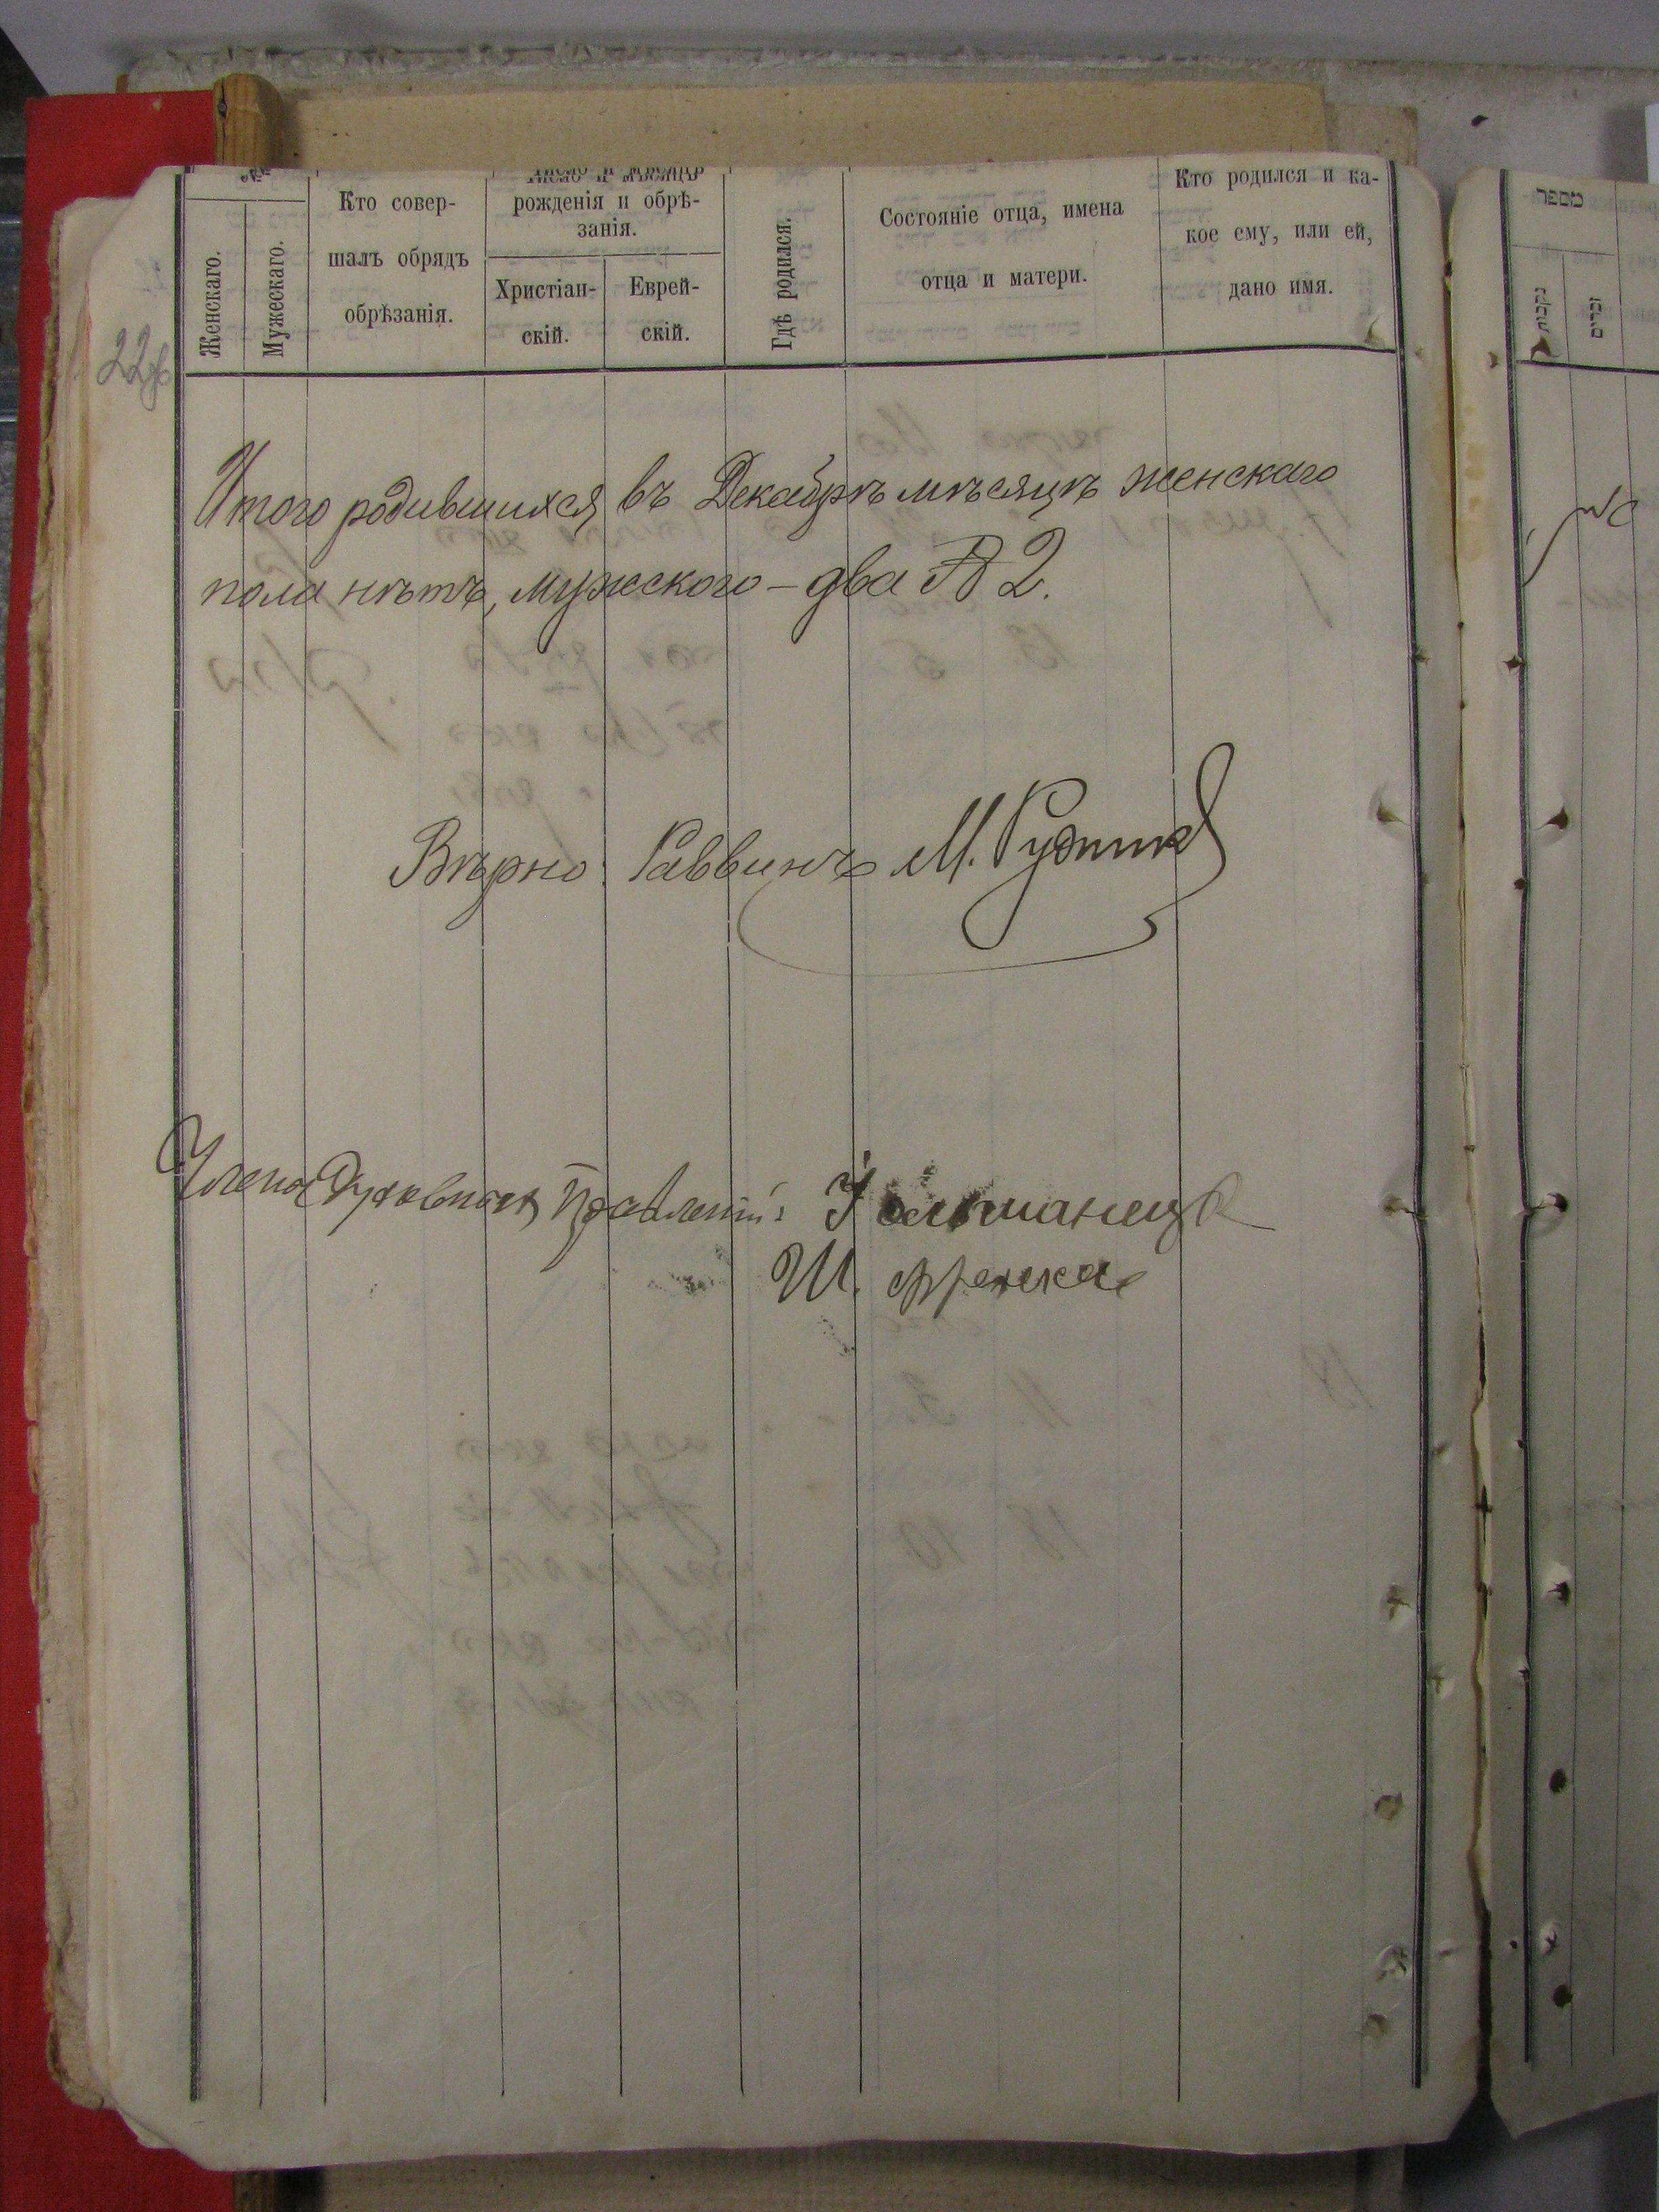 №
Женскаго.
Мужескаго.
Кто совер-
шалъ обрядъ
обрѣзанія.
Число и мѣсяцъ
рожденія и обрѣ-
занія.
Христіан-
скій.
Еврей-
скій.
Гдѣ родился.
Состояніе отца, имена
отца и матери.
Кто родился и ка-
кое ему, или ей,
дано имя.
Итого родившихся въ Декабрѣ мѣсяцѣ женскаго
пола нѣтъ, мужского – два 2.
Вѣрно: Раввинъ М.
Члены Духовнаго Правленія:
Ш.
מספר
נקבות
זכרים